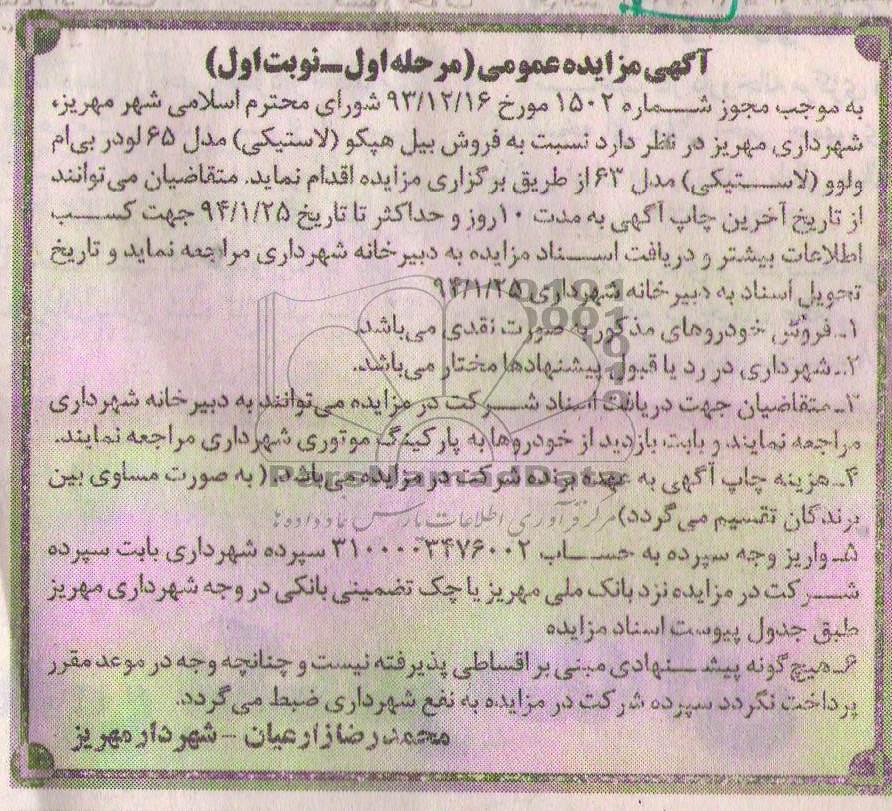 آگهی مزایده عمومی (مرحله اول ـ نوبت اول)
به موجب مجوز شماره ۱۵۰۲ مورخ ۹۳/۱۲/۱۶ شورای محترم اسلامی شهر مهریز،
شهرداری مهریز در نظر دارد نسبت به فروش بیل هپکو (لاستیکی) مدل ۶۵ لودر بی‌ام
ولوو (لاستیکی) مدل ۶۳ از طریق برگزاری مزایده اقدام نماید. متقاضیان می‌توانند
از تاریخ آخرین چاپ آگهی به مدت ۱۰ روز و حداکثر تا تاریخ ۹۴/۱/۲۵ جهت کسب
اطلاعات بیشتر و دریافت اسناد مزایده به دبیرخانه شهرداری مراجعه نماید و تاریخ
تحویل اسناد به دبیرخانه شهرداری ۹۴/۱/۲۵
۱ـ فروش خودروهای مذکور به صورت نقدی می‌باشد.
۲ـ شهرداری در رد یا قبول پیشنهادها مختار می‌باشد.
۳ـ متقاضیان جهت دریافت اسناد شرکت در مزایده می‌توانند به دبیرخانه شهرداری
مراجعه نمایند و بابت بازدید از خودروها به پارکینگ موتوری شهرداری مراجعه نمایند.
۴ـ هزینه چاپ آگهی به عهده برنده شرکت در مزایده می‌باشد. (به صورت مساوی بین
برندگان تقسیم می‌گردد)
ParsNamadData
مرکز فرآوری اطلاعات پارس نماد داده‌ها
۵ـ واریز وجه سپرده به حساب ۳۱۰۰۰۰۳۴۷۶۰۰۲ سپرده شهرداری بابت سپرده
شرکت در مزایده نزد بانک ملی مهریز یا چک تضمینی بانکی در وجه شهرداری مهریز
طبق جدول پیوست اسناد مزایده
۶ـ هیچ گونه پیشنهادی مبنی بر اقساطی پذیرفته نیست و چنانچه وجه در موعد مقرر
پرداخت نگردد سپرده شرکت در مزایده به نفع شهرداری ضبط می‌گردد.
محمدرضا زارعیان - شهردار مهریز